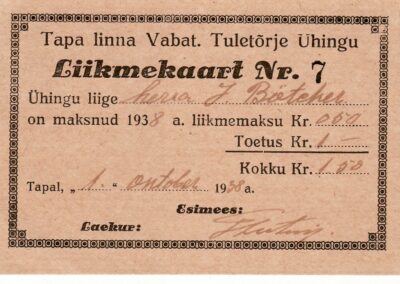 Tapa linna Vabat. Tuletõrje Ühingu
Liikmekaart Nr. 7
Ühingu liige herra J. Bötcher
on maksnud 1938 a. liikmemaksu Kr. 0.50
Toetus Kr. 1.-
Kokku Kr. 1.50
Tapal, „1." oktober 1938 a.
Esimees:
Laekur: